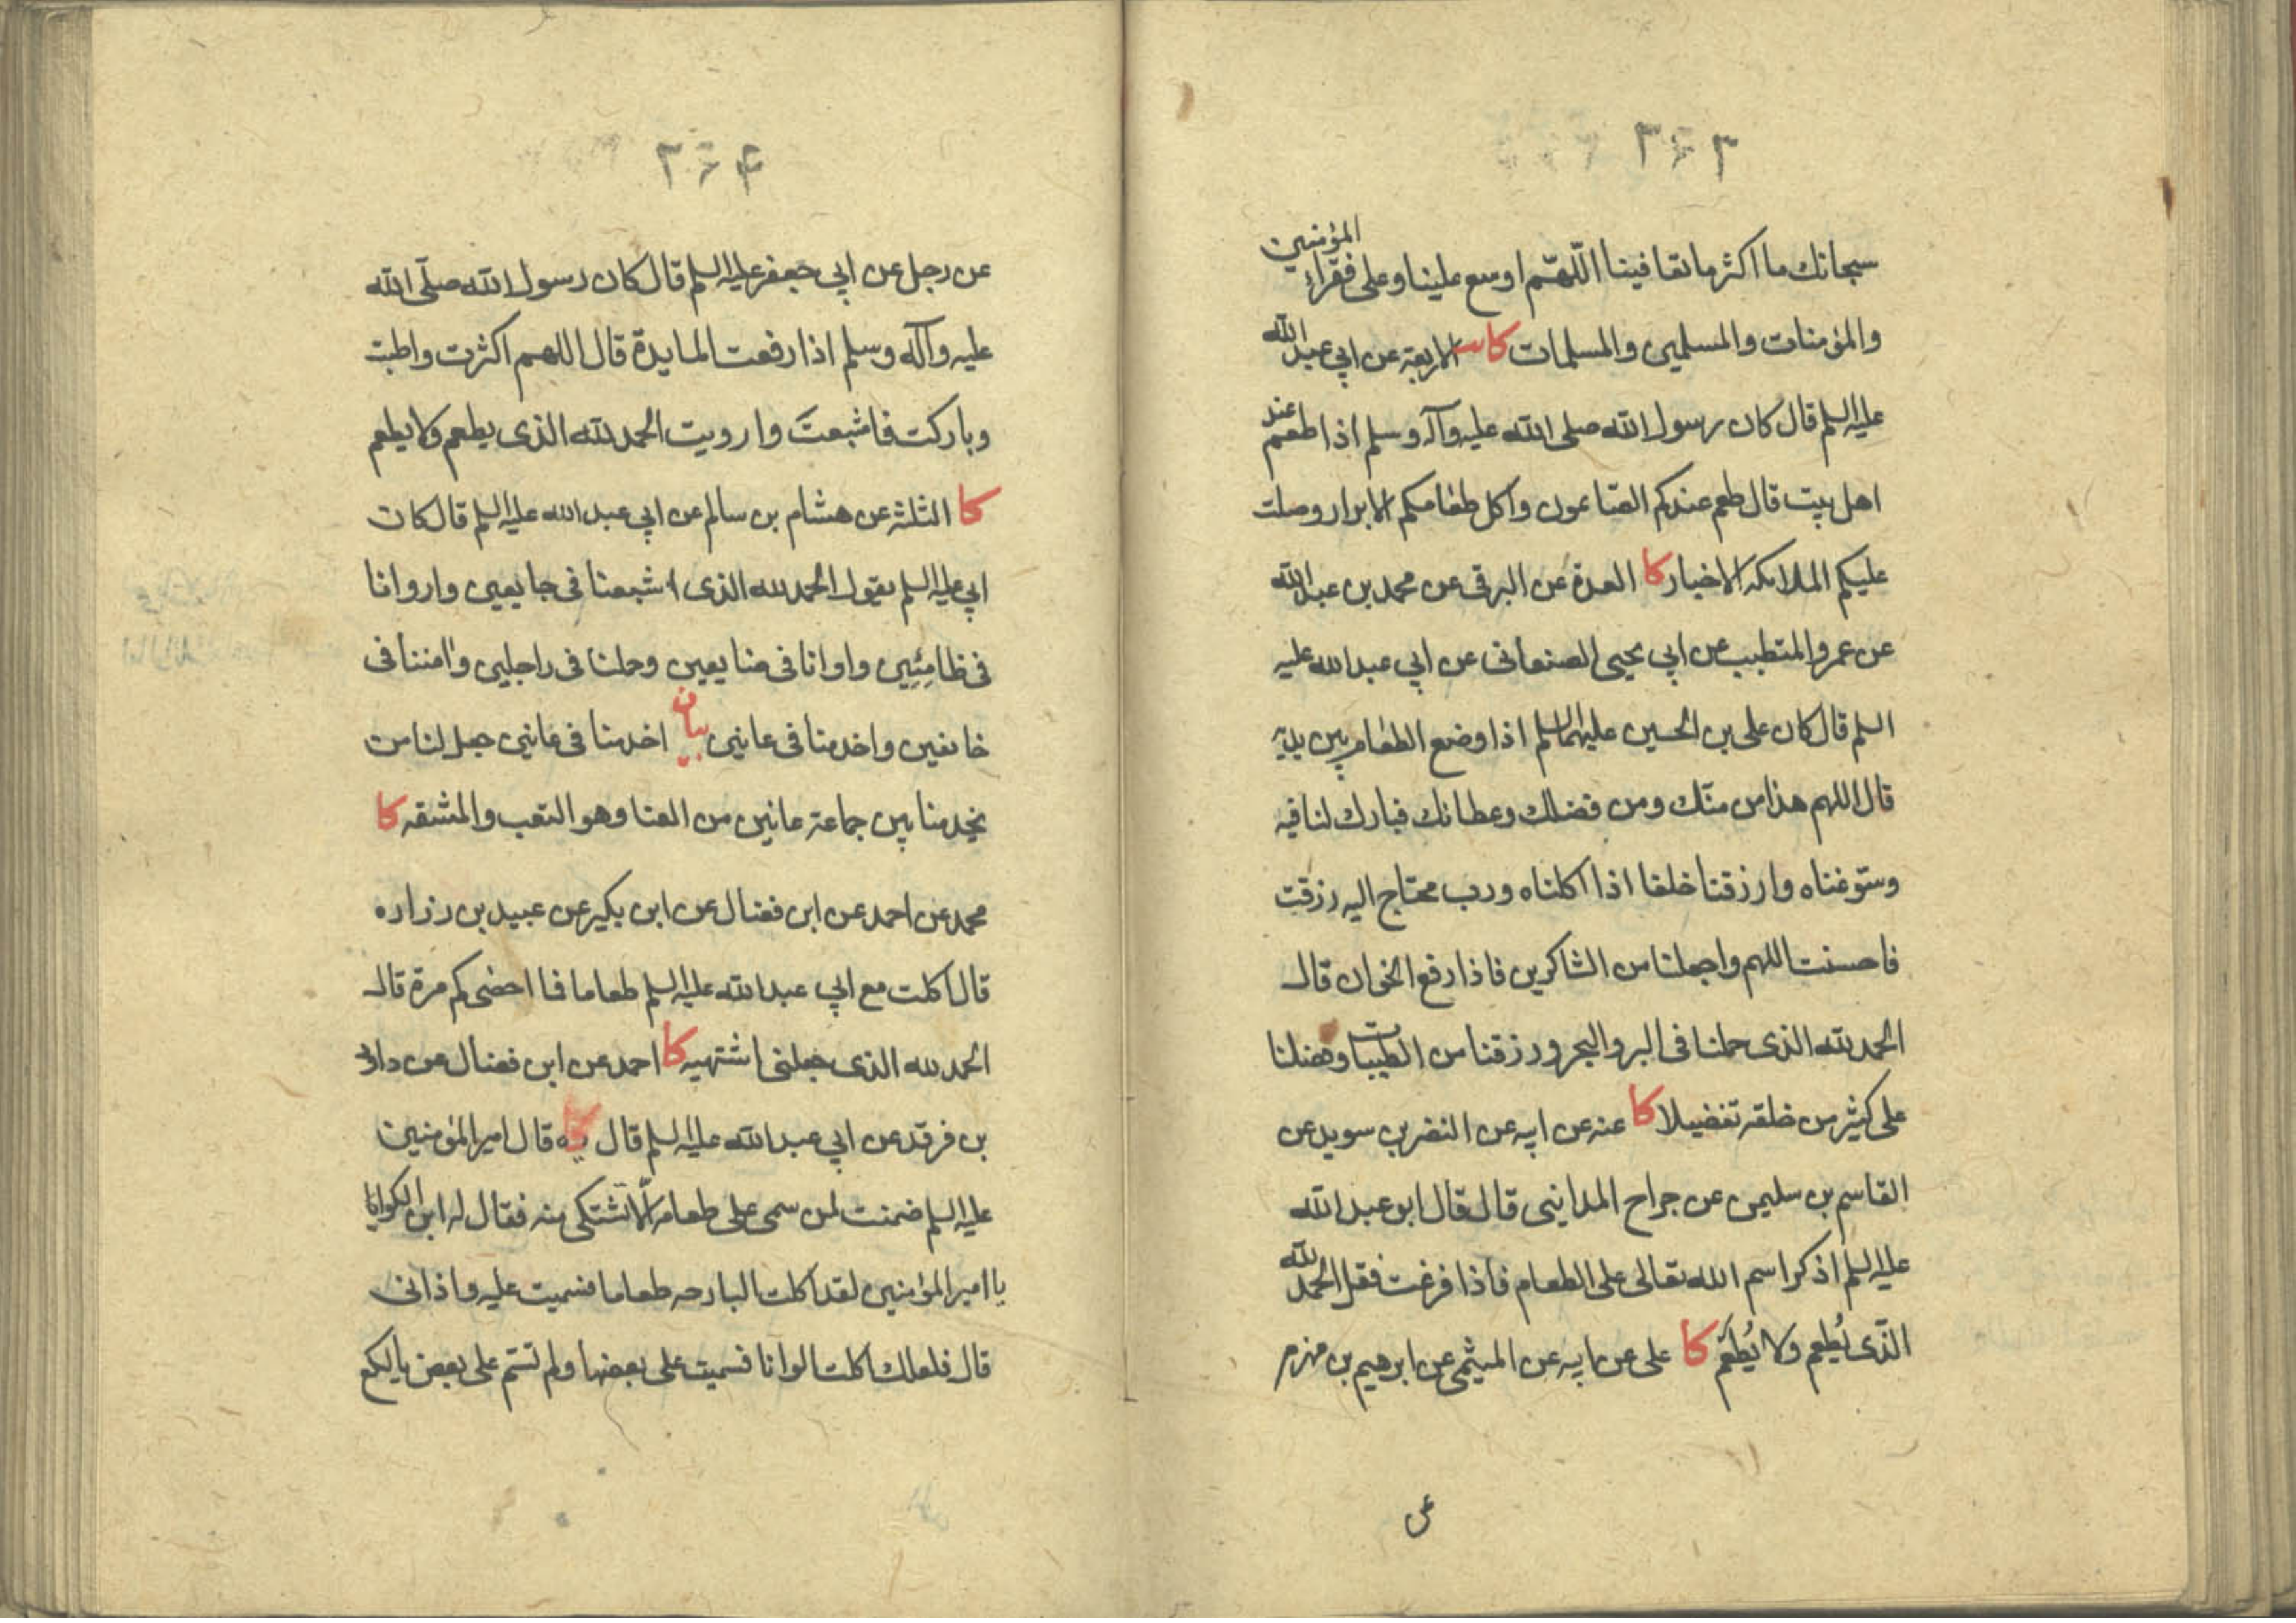 ۳۶۳
سبحانك ما اكثر ما تعافينا اللّهمّ اوسع علينا وعلى فقراء المؤمنين
والمؤمنات والمسلمين والمسلمات كا الاربعة عن ابي عبد الله
عليه السلم قال كان رسول الله صلى الله عليه وآله وسلم اذا طعم عند
اهل بيت قال طعم عندكم الصّائمون واكل طعامكم الابرار وصلت
عليكم الملائكه الاخيار كا العدة عن البرقى عن محمد بن عبد الله
عن عمرو المتطبب عن ابي يحيى الصنعانى عن ابي عبد الله عليه
السلم قال كان على بن الحسين عليهما السلم اذا وضع الطعام بين يديه
قال اللهم هذا من منّك ومن فضلك وعطائك فبارك لنا فيه
وسوّغناه وارزقنا خلفا اذا اكلناه ورب محتاج اليه رزقت
فاحسنت اللهم واجعلنا من الشاكرين فاذا رفع الخوان قال
الحمد لله الذى حملنا فى البر والبحر ورزقنا من الطيبات وفضلنا
على كثير من خلقه تفضيلا كا عنه عن ابيه عن النضر بن سويد عن
القاسم بن سليمن عن جراح المداينى قال قال ابو عبد الله
عليه السلم اذكر اسم الله تعالى على الطعام فاذا فرغت فقل الحمد لله
الّذى يُطعِم ولا يُطعَم كا على عن ابيه عن الميثمى عن ابرهيم بن مهزم
عن
۳۶۴
عن رجل عن ابي جعفر عليه السلم قال كان رسول الله صلّى الله
عليه وآله وسلم اذا رفعت المايدة قال اللهم اكثرت واطبت
وباركت فاشبعتَ وارويت الحمد لله الذى يطعم ولا يطعم
كا الثلثه عن هشام بن سالم عن ابي عبد الله عليه السلم قال كان
ابي عليه السلم يقول الحمد لله الذى اشبعنا فى جايعين واروانا
فى ظامِئِين واوانا فى ضايعين وحملنا فى راجلين وامننا فى
خائفين واخدمنا فى عانين بيان اخدمنا فى عانين جعل لنا من
يخدمنا بين جماعة عانين من العنا وهو التعب والمشقه كا
محمد عن احمد عن ابن فضال عن ابن بكير عن عبيد بن زراره
قال اكلت مع ابي عبد الله عليه السلم طعاما فما احصى كم مرة قال
الحمد لله الذى جعلنى اشتهيه كا احمد عن ابن فضال عن داود
بن فرقد عن ابي عبد الله عليه السلم قال قال امير المؤمنين
عليه السلم ضمنت لمن سمى على طعامه الّا تشتكى منه فقال له ابن الكوا
يا امير المؤمنين لقد اكلت البارحه طعاما فسميت عليه واذانى
قال فلعلك اكلت الوانا فسميت على بعضها ولم تسمّ على بعض يا لكع